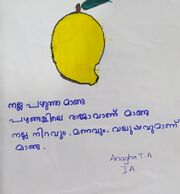 നല്ല പഴുത്ത മാങ്ങ
പഴങ്ങളിലെ രാജാവാണ് മാങ്ങ
നല്ല നിറവും, മണവും, വലുപ്പവുമാണ്
മാങ്ങ.
Anagha T.A
I A